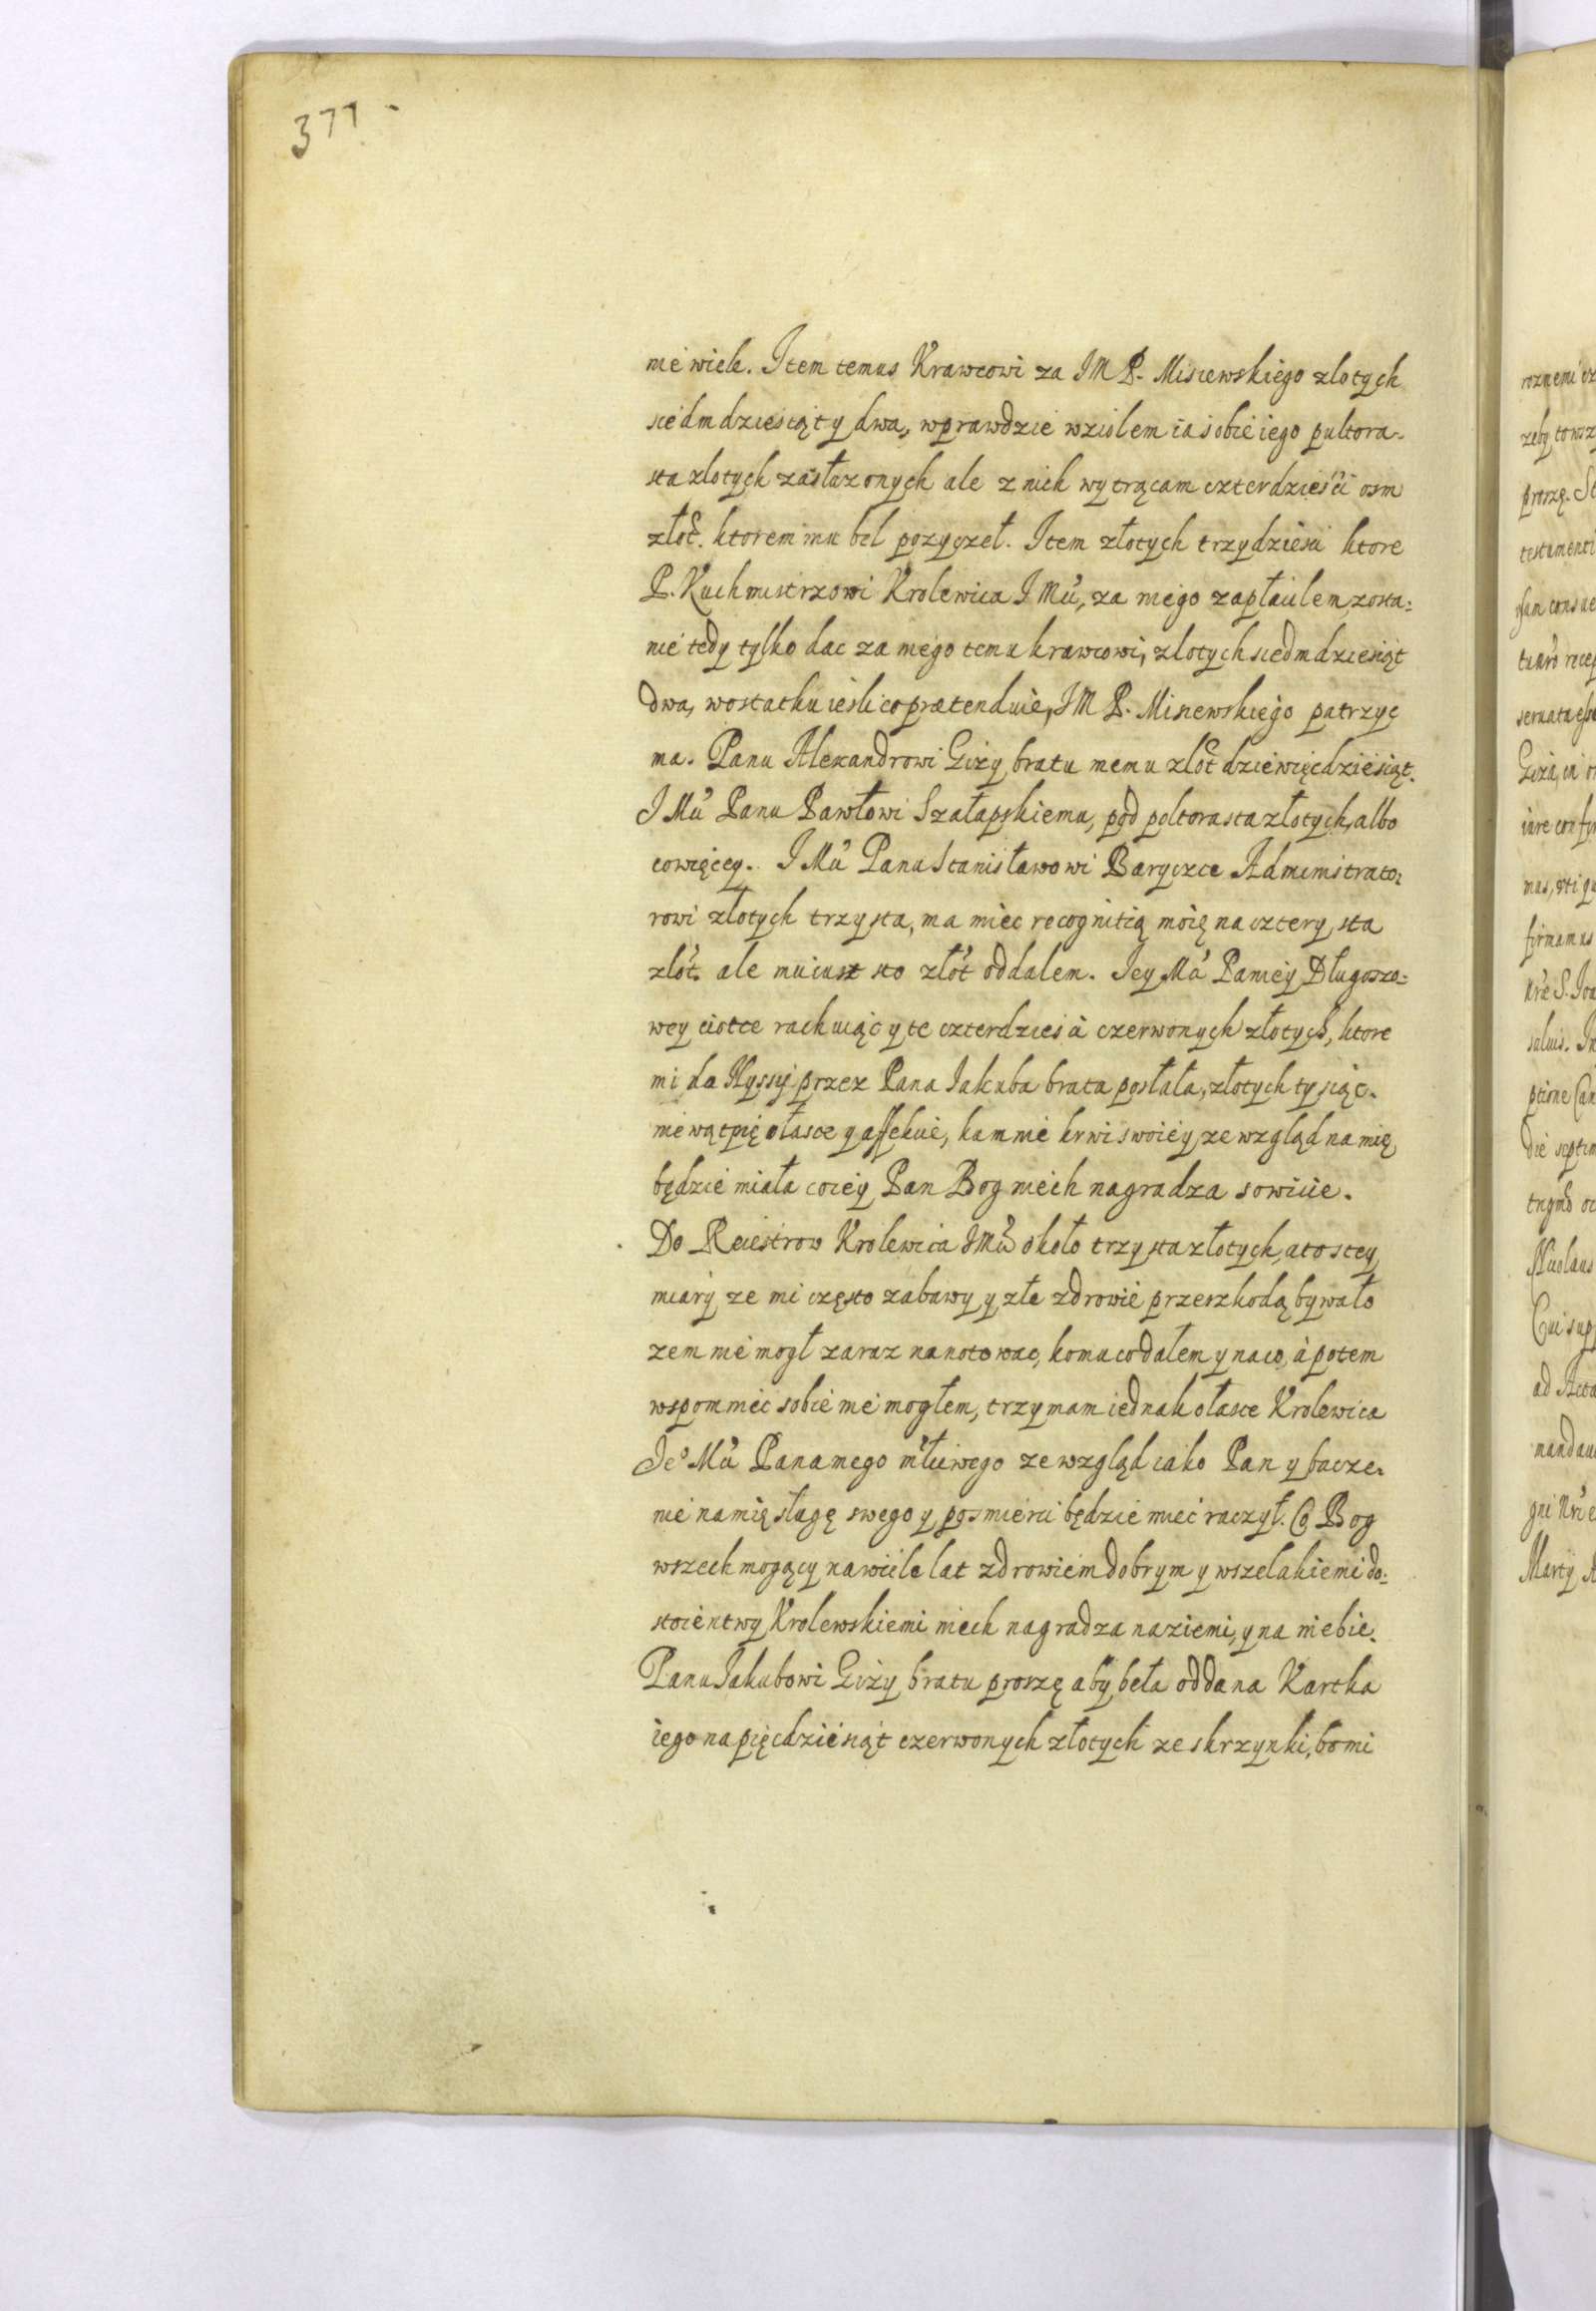 377
nie wiele. Item temus Krawcowi za IM P. Misiewskiego zlotych
siedmdziesiąt y dwa, wprawdzie wziolem ia sobie iego pultora-
sta zlotych zasłużonych ale z nich wytrącam czterdzieści osm
złot. ktorem mu bel pozyczeł. Item złotych trzydziesci ktore
P. Kuchmistrzowi Krolewica I Mci, za niego zapłacilem, zosta=
nie tedy tylko dac za niego temu krawcowi, zlotych siedmdziesiąt
dwa, wostatku iesli co prætenduie, IM P. Misiewskiego patrzyc
ma. Panu Alexandrowi Giży bratu memu zlot dziewięcdziesiąt.
I Mci Panu Pawłowi Szałapskiemu, pod poltorasta złotych, albo
co więcey. I Mci Panu Stanisławowi Baryczce Administrato=
rowi złotych trzysta, ma miec recognitią moię na cztery sta
złot. ale mu iusz sto złot oddalem. Iey Mci Paniey Długoszo=
wey ciotce rachuiąc y te czterdziesci czerwonych złotych, ktore
mi do Nyssy przez Pana Iakuba brata posłała, złotych tysiąc.
nie wątpię o łasce y affekcie, ka mnie krwi swoiey ze wzgląd na mię
będzie miała co iey Pan Bog niech nagradza sowicie.
Do Reiestrow Krolewica IMci około trzysta złotych, a to s tey
miary ze mi często zabawy y złe zdrowie przeszkodą bywało
zem nie mogł zaraz nanotowac, komu co dałem y na co, a potem
wspomniec sobie nie mogłem, trzymam iednak o łasce Krolewica
Ie° Mci Pana mego młciwego ze wzgląd iako Pan y bacze=
nie na mię sługę swego y po smierci będzie miec raczył. Co Bog
wszechmogący na wiele lat zdrowiem dobrym y wszelakiemi do=
stoienstwy Krolewskiemi niech nagradza na ziemi, y na niebie.
Panu Iakubowi Giży bratu proszę aby beła oddana Kartka
iego na pięcdziesiąt czerwonych złotych ze skrzynki, bo mi